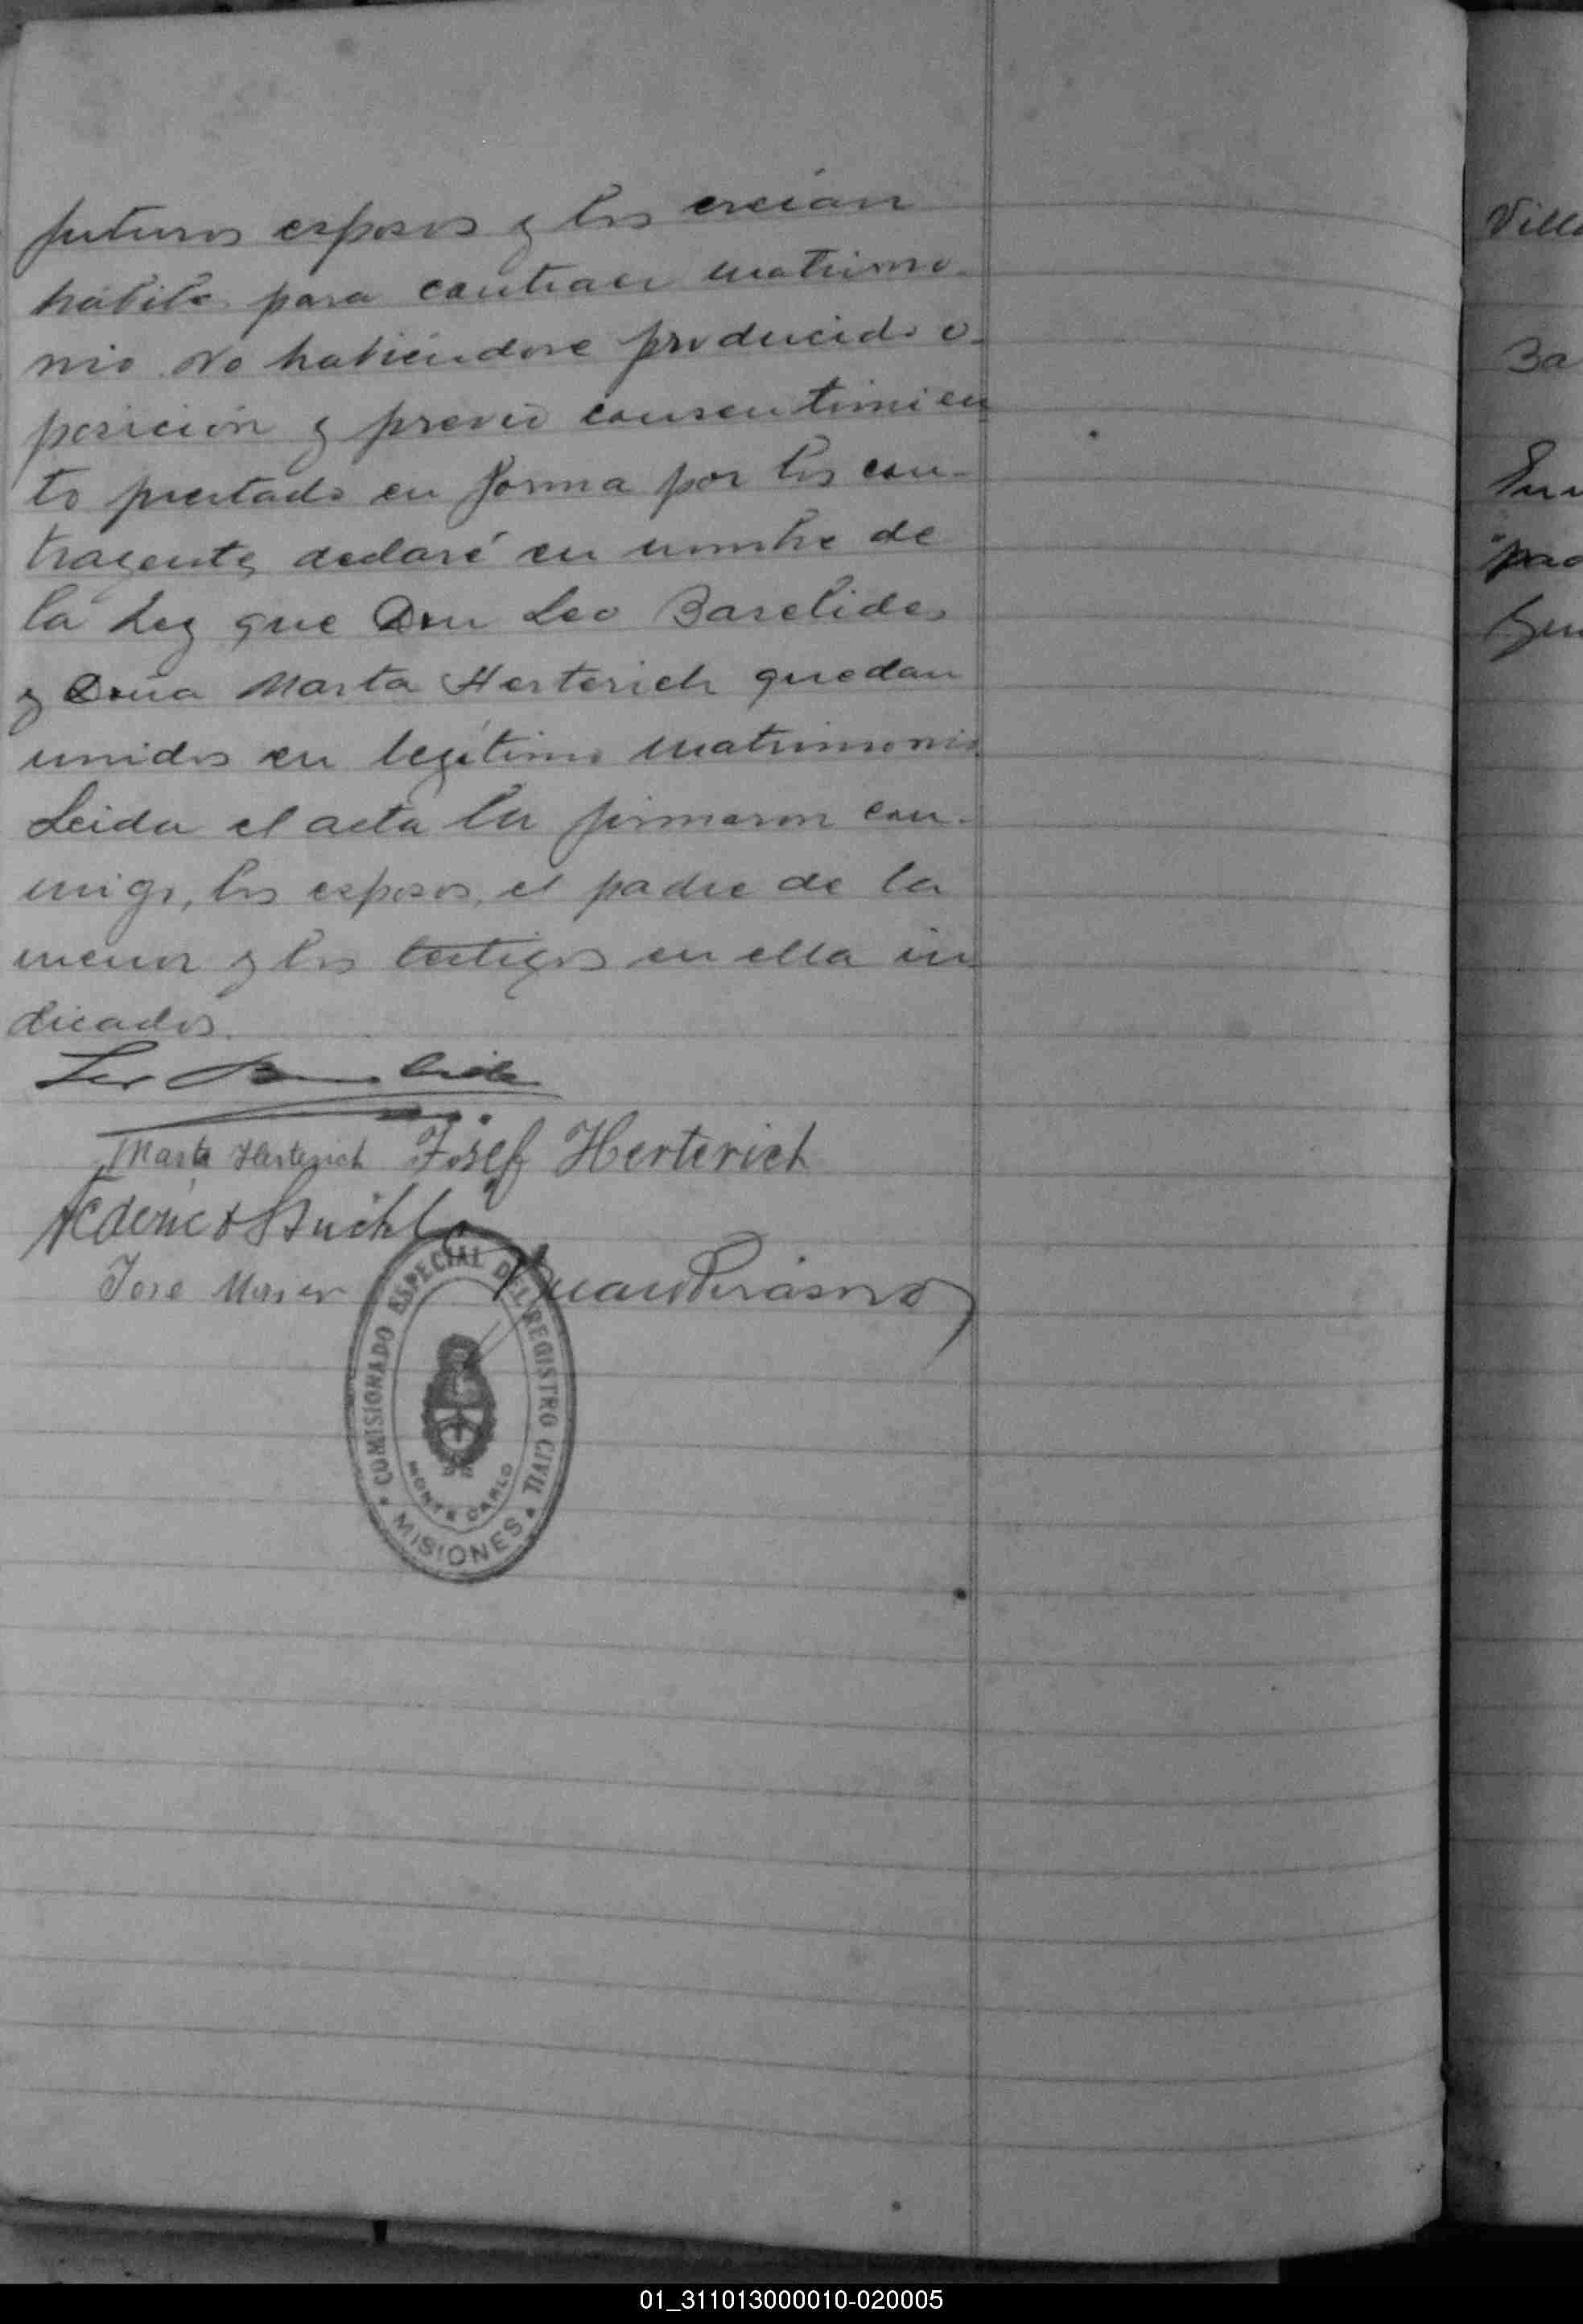 futuros esposos y los creían
hábiles para contraer matrimo-
nio. No habiéndose producido o-
posición y previo consentimien
to prestado en forma por los con-
trayentes declaré en nombre de
la Ley que Don Leo Baselides
y Doña Marta Herterich quedan
unidos en legítimo matrimonio.
Leida el acta la firmaron con-
migo, los esposos, el padre de la
menor y los testigos en ella in
dicados.
Leo
Marta Herterich Josef Herterich
Federico
José Juan
COMISIONADO ESPECIAL DEL REGISTRO CIVIL
MONTE CARLO
MISIONES
Vill
Ba
01_311013000010-020005